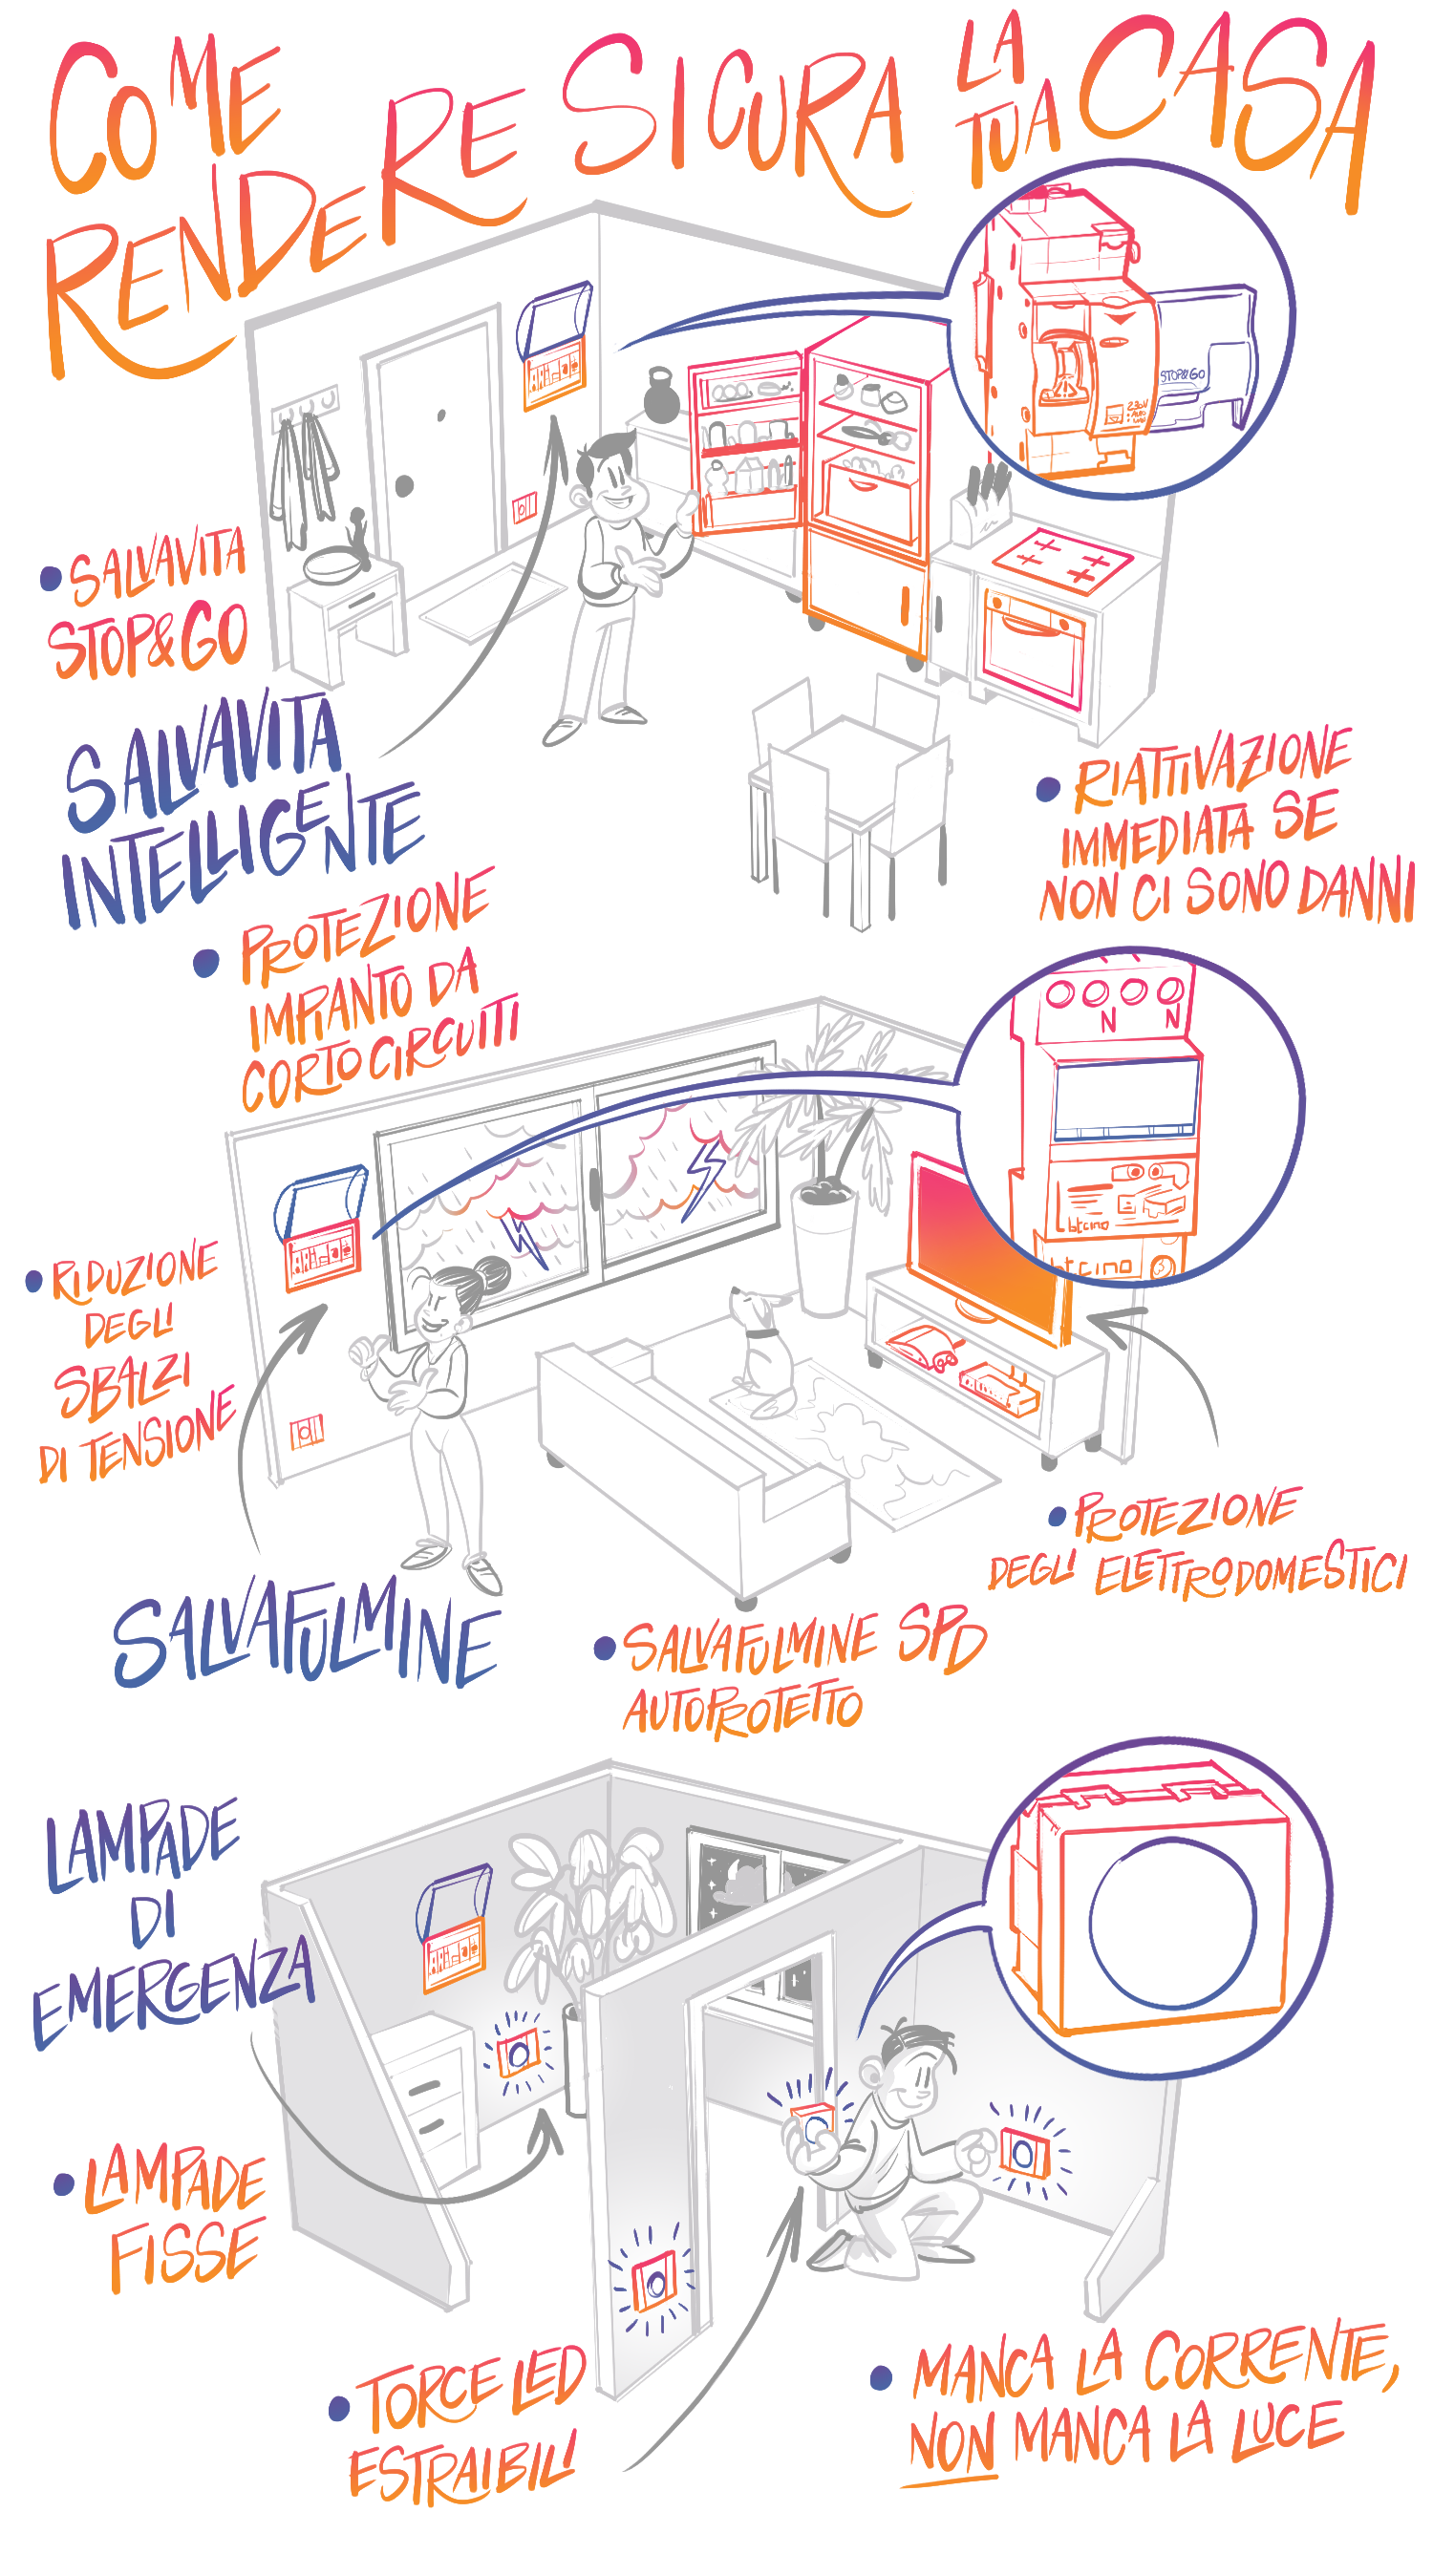 COME
RENDERE SICURA LA
TUA CASA
STOP&GO
230V
• SALVAVITA
STOP&GO
SALVAVITA
INTELLIGENTE
• RIATTIVAZIONE
IMMEDIATA SE
NON CI SONO DANNI
• PROTEZIONE
IMPIANTO DA
CORTO CIRCUITI
N N
bticino
bticino
• RIDUZIONE
DEGLI
SBALZI
DI TENSIONE
• PROTEZIONE
DEGLI ELETTRODOMESTICI
SALVAFULMINE
• SALVAFULMINE SPD
AUTOPROTETTO
LAMPADE
DI
EMERGENZA
• LAMPADE
FISSE
• TORCE LED
ESTRAIBILI
• MANCA LA CORRENTE,
NON MANCA LA LUCE